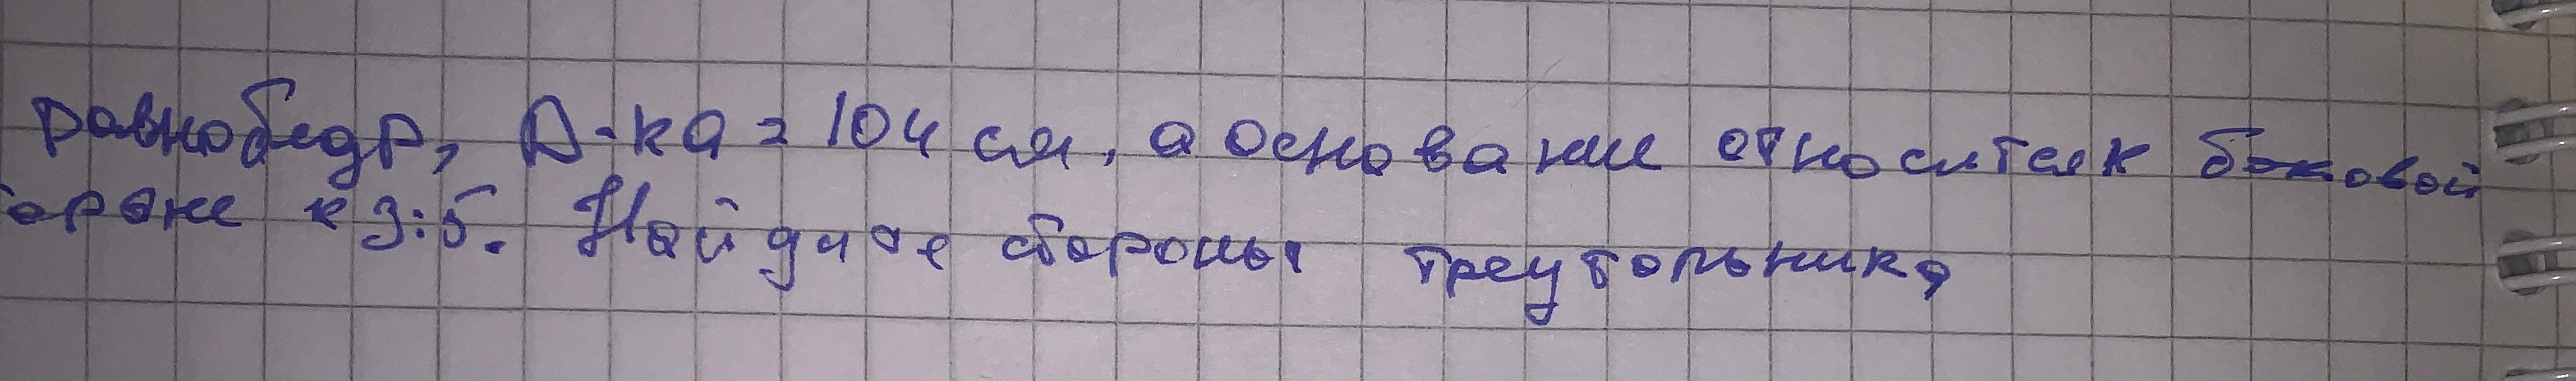 равнобедр, Δ-ка = 104 см, а основание относится к боковой
ороне к 3:5. Найдите стороны треугольника